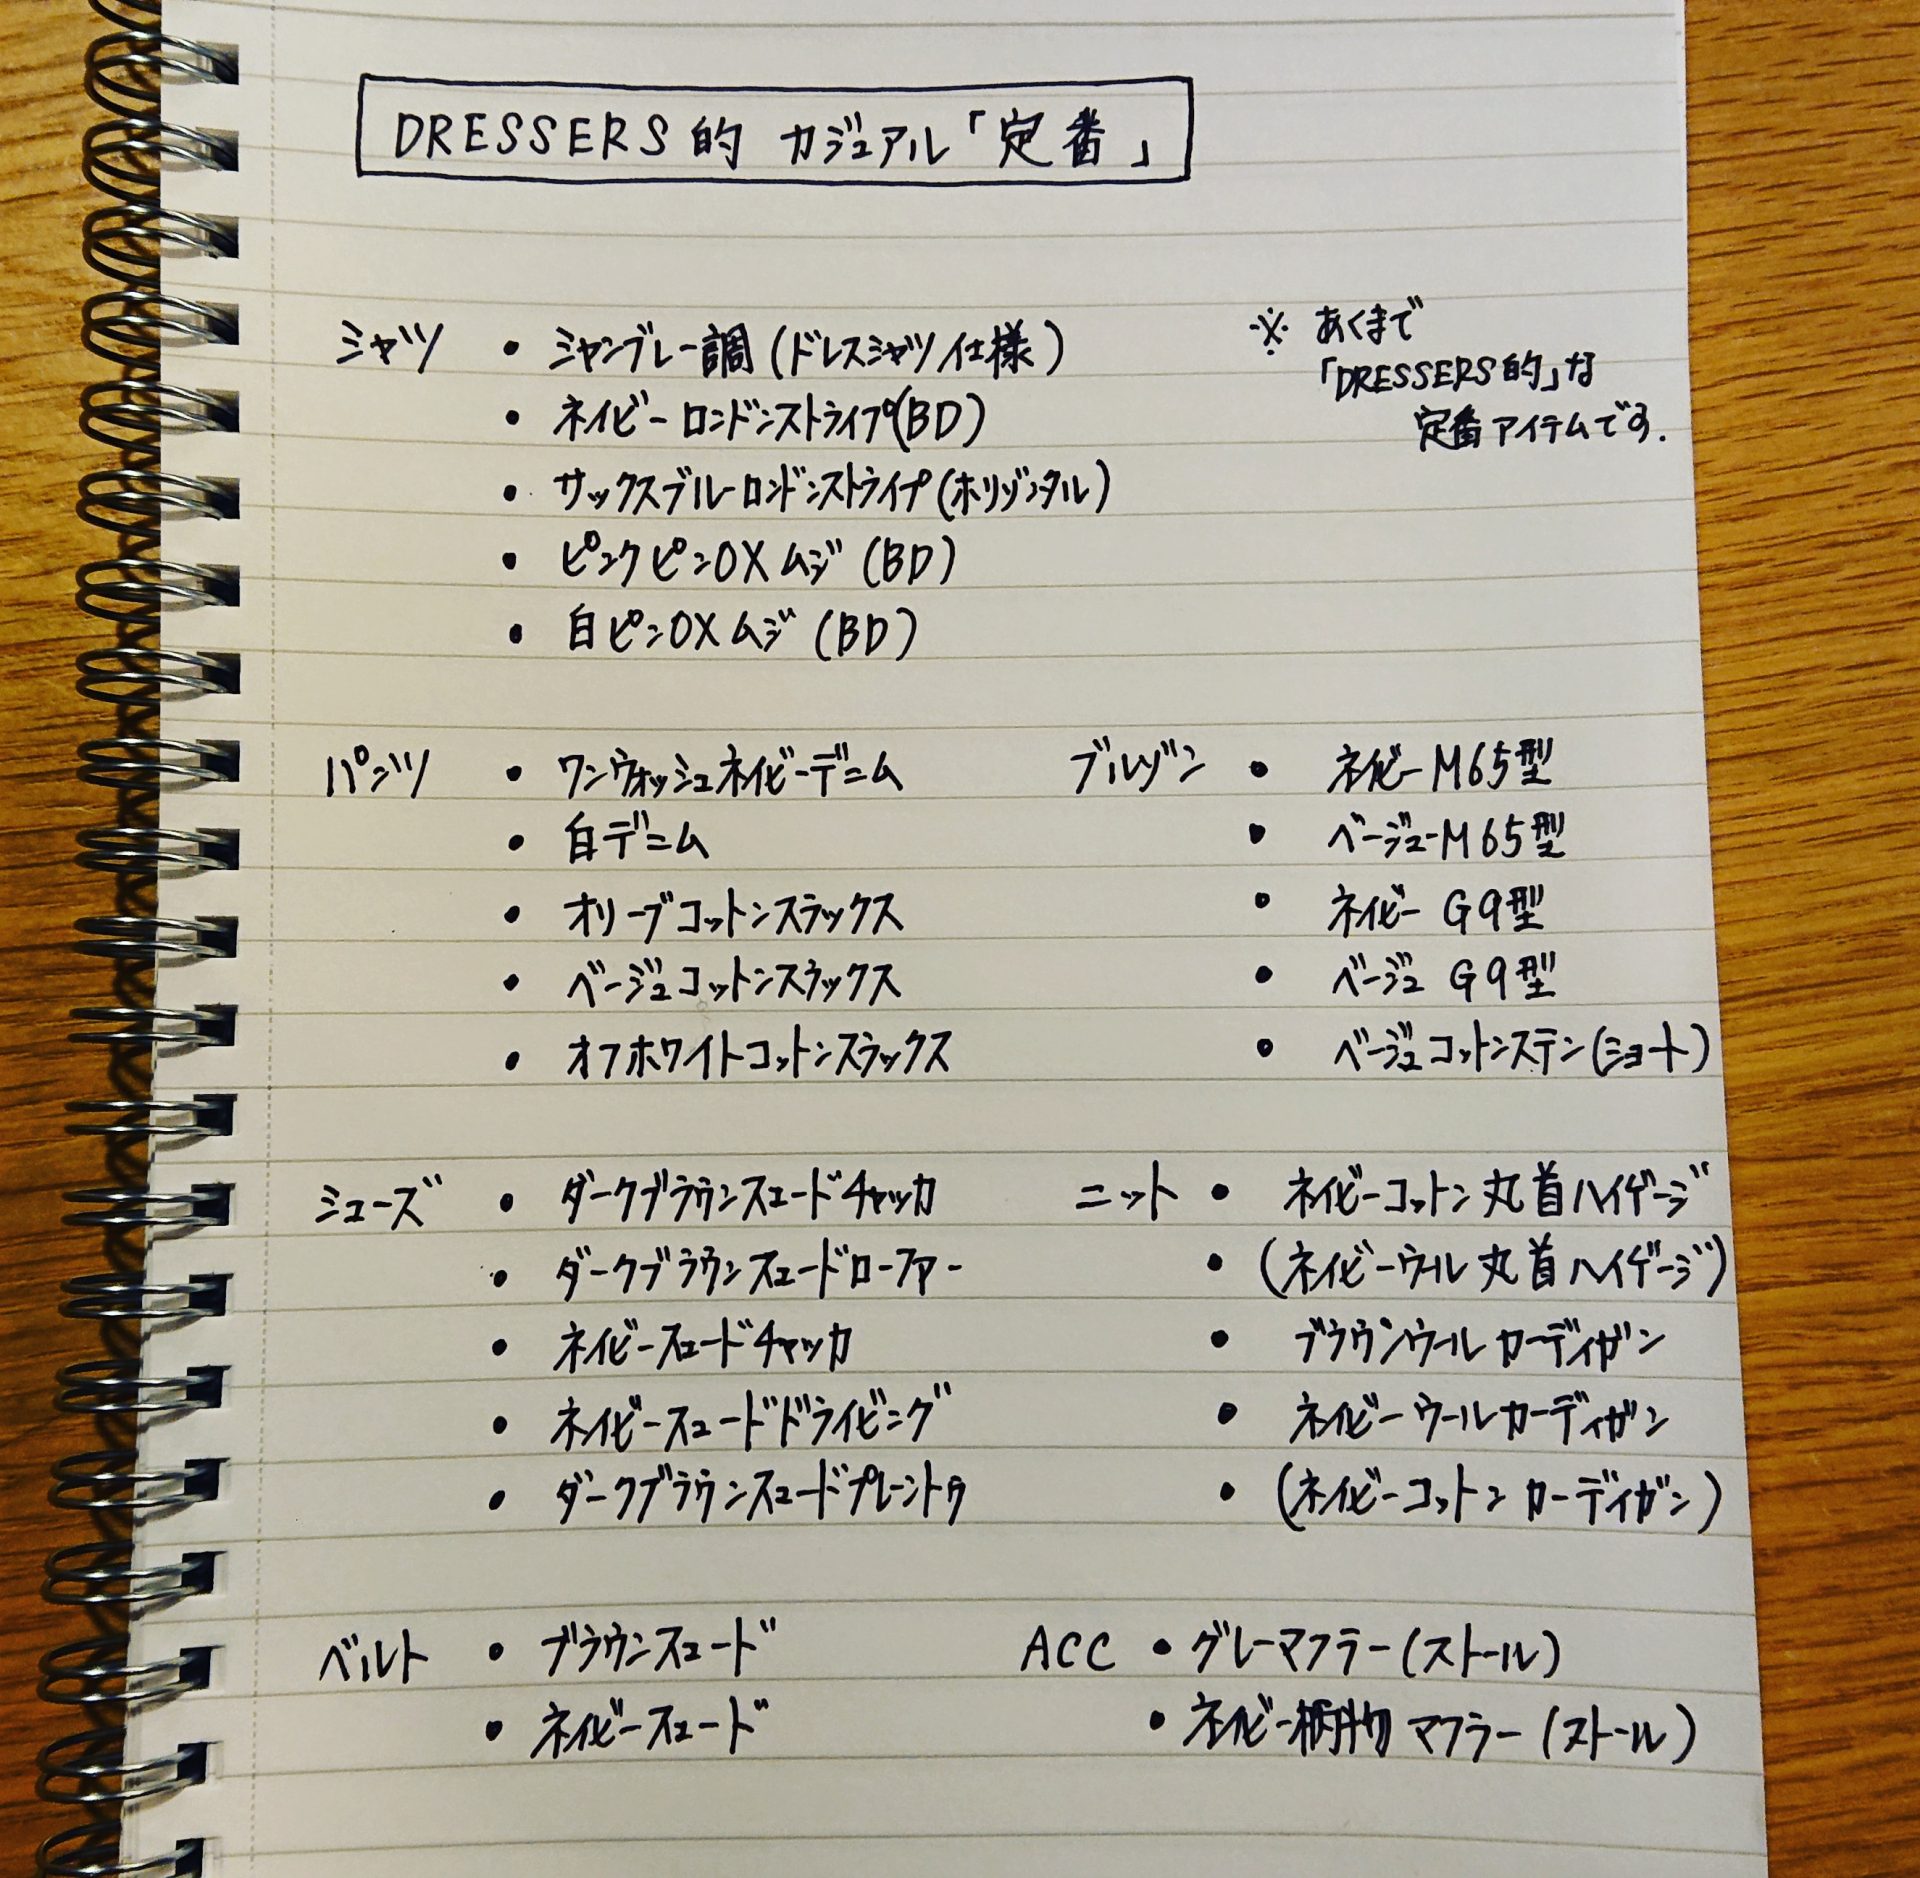 DRESSERS的 カジュアル「定番」
シャツ ・ シャンブレー調(ドレスシャツ仕様)
・ ネイビーロンドンストライプ(BD)
・ サックスブルーロンドンストライプ(ホリゾンタル)
・ ピンクピンOXムジ(BD)
・ 白ピンOXムジ(BD)
※ あくまで
「DRESSERS的」な
定番アイテムです.
パンツ ・ ワンウォッシュネイビーデニム
・ 白デニム
・ オリーブコットンスラックス
・ ベージュコットンスラックス
・ オフホワイトコットンスラックス
ブルゾン ・ ネイビーM65型
・ ベージューM65型
・ ネイビー G9型
・ ベージュ G9型
・ ベージュコットンステン(ショート)
シューズ ・ ダークブラウンスエードチャッカ
・ ダークブラウンスエードローファー
・ ネイビースエードチャッカ
・ ネイビースエードドライビング
・ ダークブラウンスエードプレーントゥ
ニット ・ ネイビーコットン丸首ハイゲージ
・ (ネイビーウール丸首ハイゲージ)
・ ブラウンウールカーディガン
・ ネイビーウールカーディガン
・ (ネイビーコットンカーディガン)
ベルト ・ ブラウンスエード
・ ネイビースエード
ACC ・ グレーマフラー(ストール)
・ ネイビー柄物マフラー(ストール)